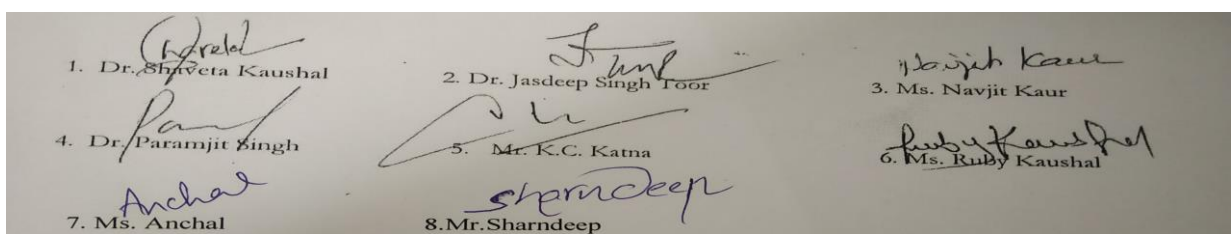 1. Dr. Shaveta Kaushal 2. Dr. Jasdeep Singh Toor Navjit Kaur
3. Ms. Navjit Kaur
4. Dr. Paramjit Singh 5. Mr. K.C. Katna Ruby Kaushal
6. Ms. Ruby Kaushal
Anchal Sharndeep
7. Ms. Anchal 8.Mr.Sharndeep